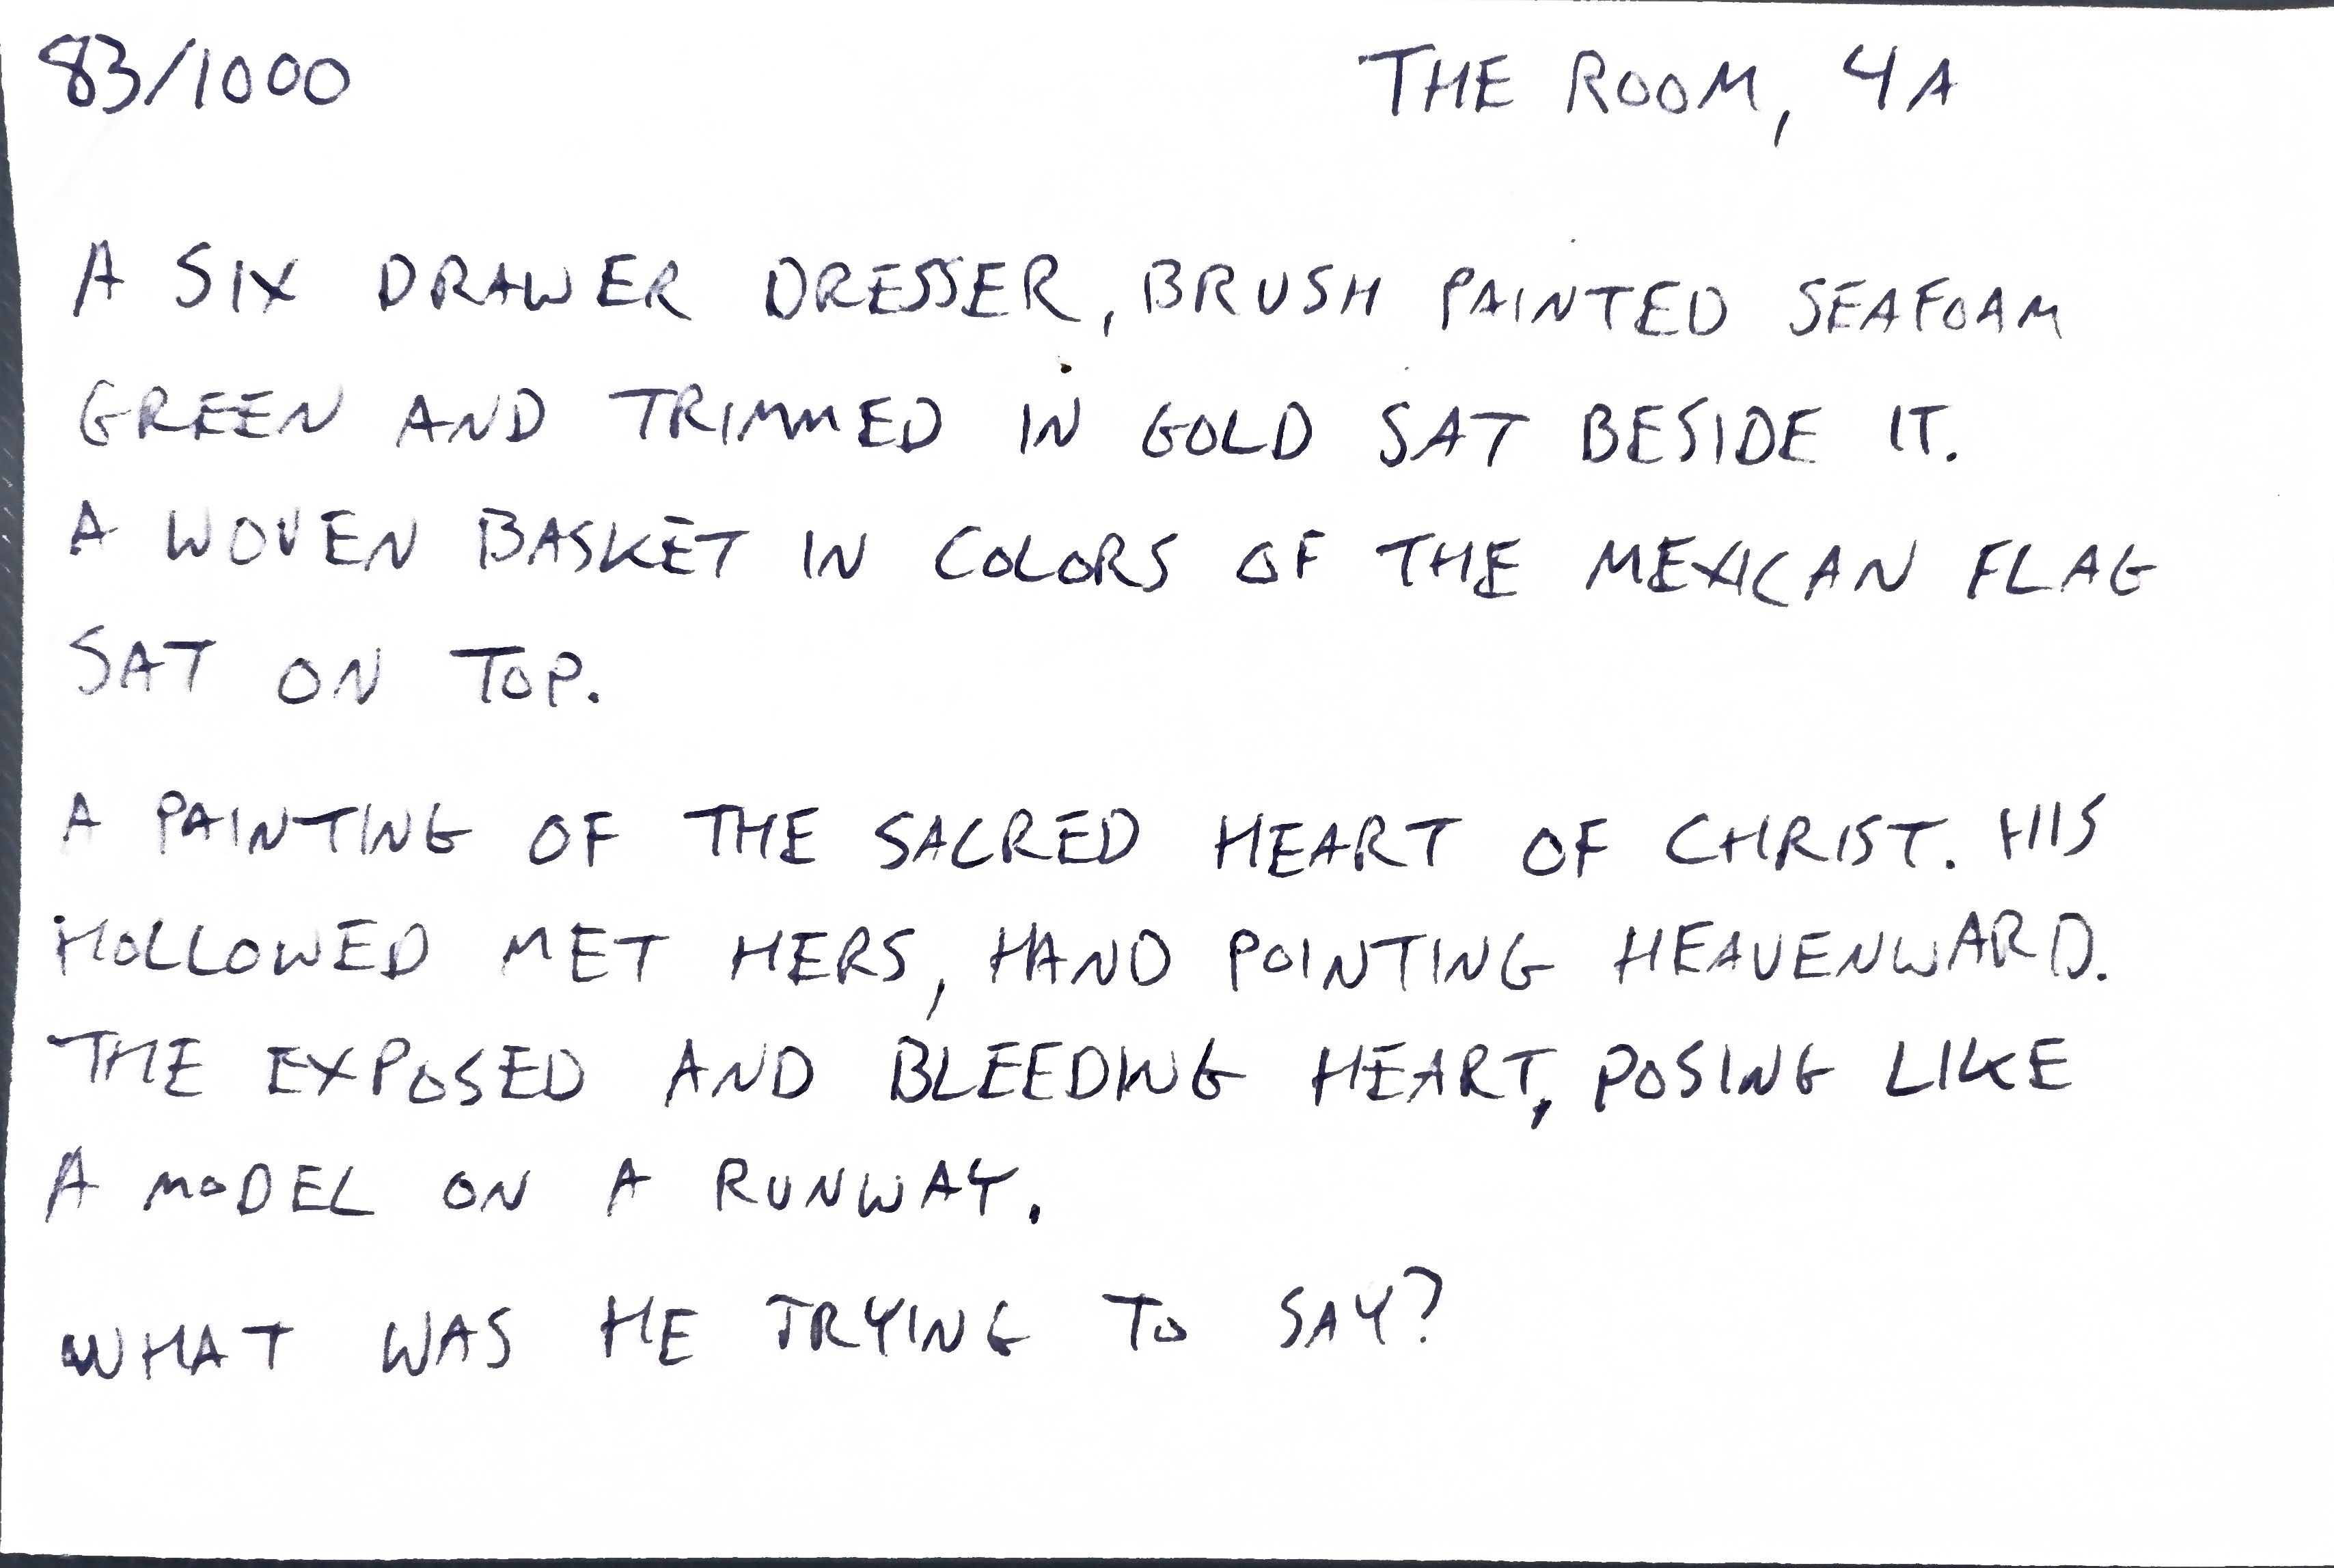 83/1000 THE ROOM, 4A
A SIX DRAWER DRESSER, BRUSH PAINTED SEAFOAM
GREEN AND TRIMMED IN GOLD SAT BESIDE IT.
A WOVEN BASKET IN COLORS OF THE MEXICAN FLAG
SAT ON TOP.
A PAINTING OF THE SACRED HEART OF CHRIST. HIS
HOLLOWED MET HERS, HAND POINTING HEAVENWARD.
THE EXPOSED AND BLEEDING HEART, POSING LIKE
A MODEL ON A RUNWAY.
WHAT WAS HE TRYING TO SAY?